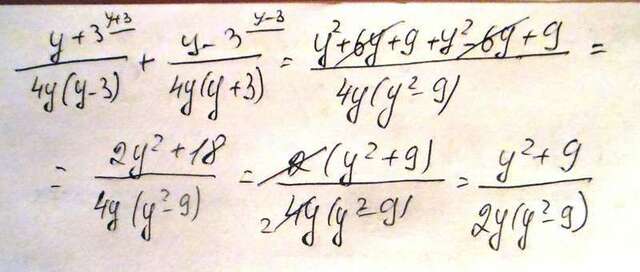 (y+3)^(y+3)/(4y(y-3)) + (y-3)^(y-3)/(4y(y+3)) = (y²+6y+9+y²-6y+9)/(4y(y²-9)) =
= (2y²+18)/(4y(y²-9)) = (2(y²+9))/(₂4y(y²-9)) = (y²+9)/(2y(y²-9))